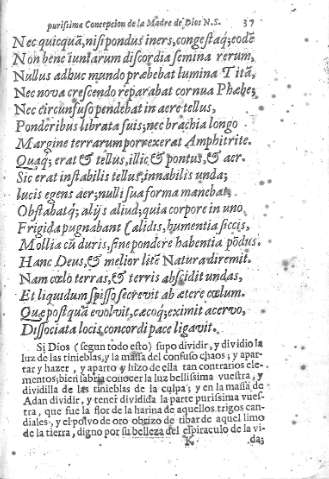 purissima Concepcion de la Madre de Dios N.S. 37
Nec quicquã, nisi pondus iners, congestaq; eodẽ
Non bene iunctarum discordia semina rerum,
Nullus adhuc mundo præbebat lumina Titã,
Nec nova crescendo reparabat cornua Phæbe;
Nec circunfuso pendebat in aere tellus,
Ponderibus librata suis; nec brachia longo
Margine terrarum porrexerat Amphitrite.
Quaq; erat & tellus, illic & pontus, & aer.
Sic erat instabilis tellus, innabilis unda;
lucis egens aer; nulli sua forma manebat,
Obstabatq; alijs aliud; quia corpore in uno
Frigida pugnabant calidis, humentia siccis,
Mollia cũ duris, sine pondere habentia põdus.
Hanc Deus, & melior litẽ Natura diremit.
Nam cœlo terras, & terris abscidit undas,
Et liquidum spisso secrevit ab ætere cœlum.
Quæ postquã evolvit, cæcoq; eximit acervo,
Dissociata locis, concordi pace ligavit.
Si Dios (segun todo esto) supo dividir, y dividio la
luz de las tinieblas, y la massa del confuso chaos; y apar-
tar y hazer, y apartò y hizo de ella tan contrarios ele-
mentos; bien sabria conocer la luz bellissima vuestra, y
dividilla de las tinieblas de la culpa; y en la massa de
Adan dividir, y tener dividida la parte purissima vues-
tra, que fue la flor de la harina de aquellos trigos can-
diales, y el polvo de oro obrizo de tibar de aquel limo
de la tierra, digno por su belleza del espiraculo de la vi-
K da;